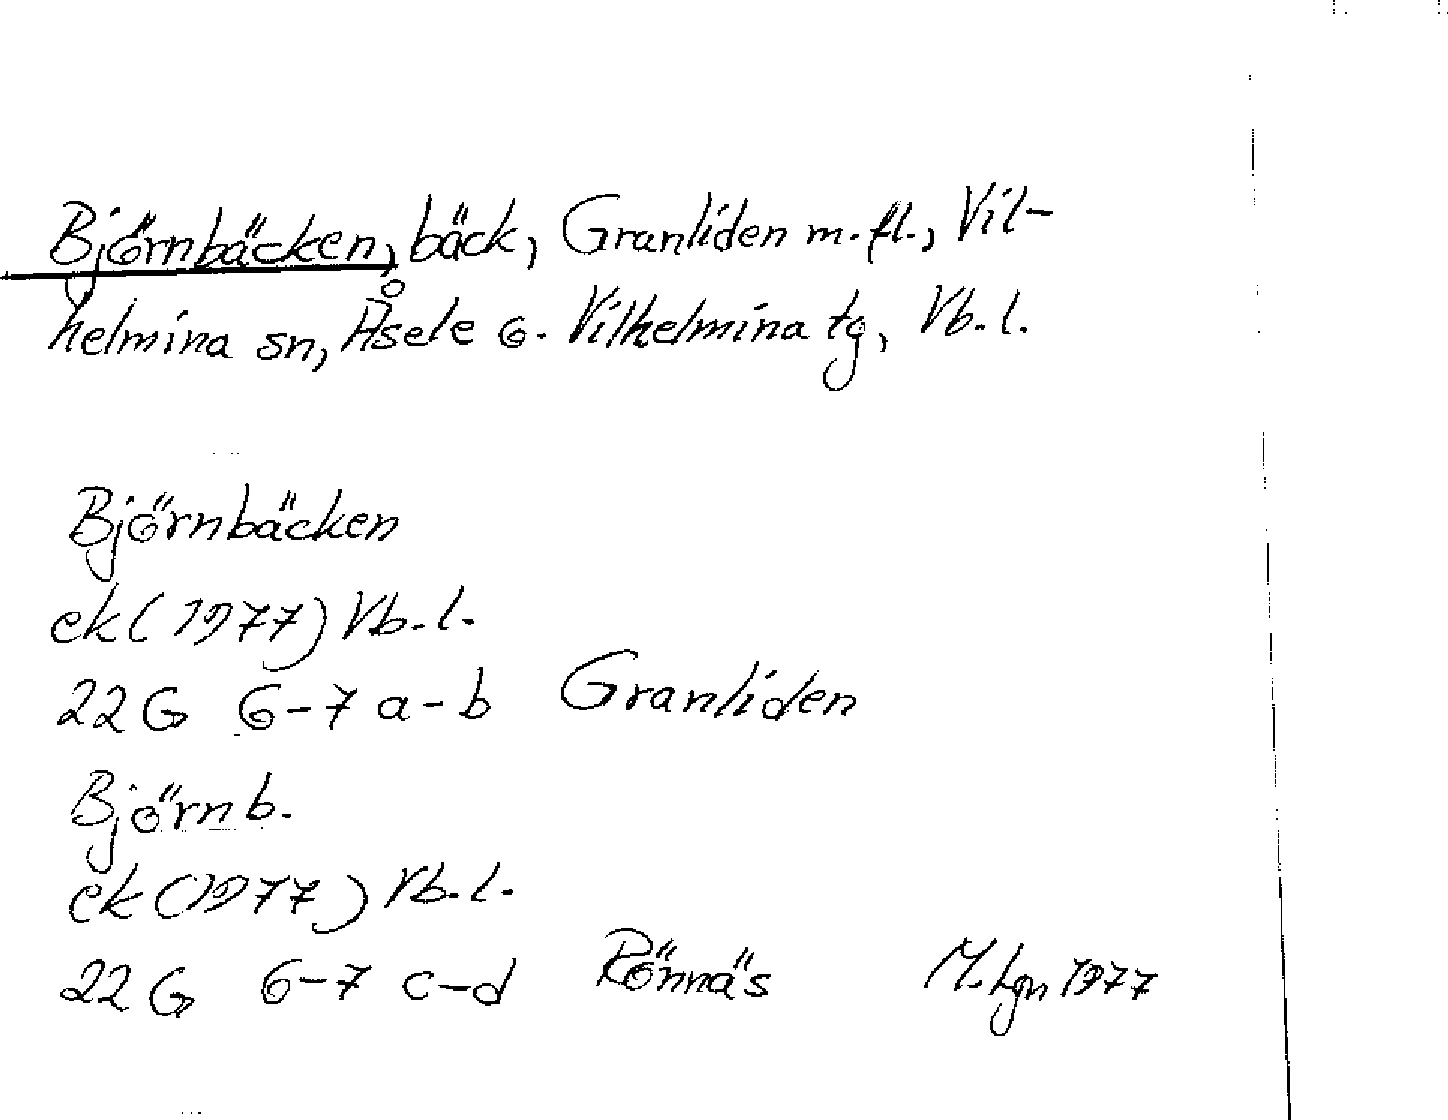 Björnbäcken, bäck, Granliden m.fl., Vil-
helmina sn, Åsele o. Vilhelmina tg, Vb.l.
Björnbäcken
ek (1977) Vb.l.
22 G 6-7 a-b Granliden
Björnb.
ek (1977) Vb.l.
22 G 6-7 c-d Rönnäs M.hgn 1977